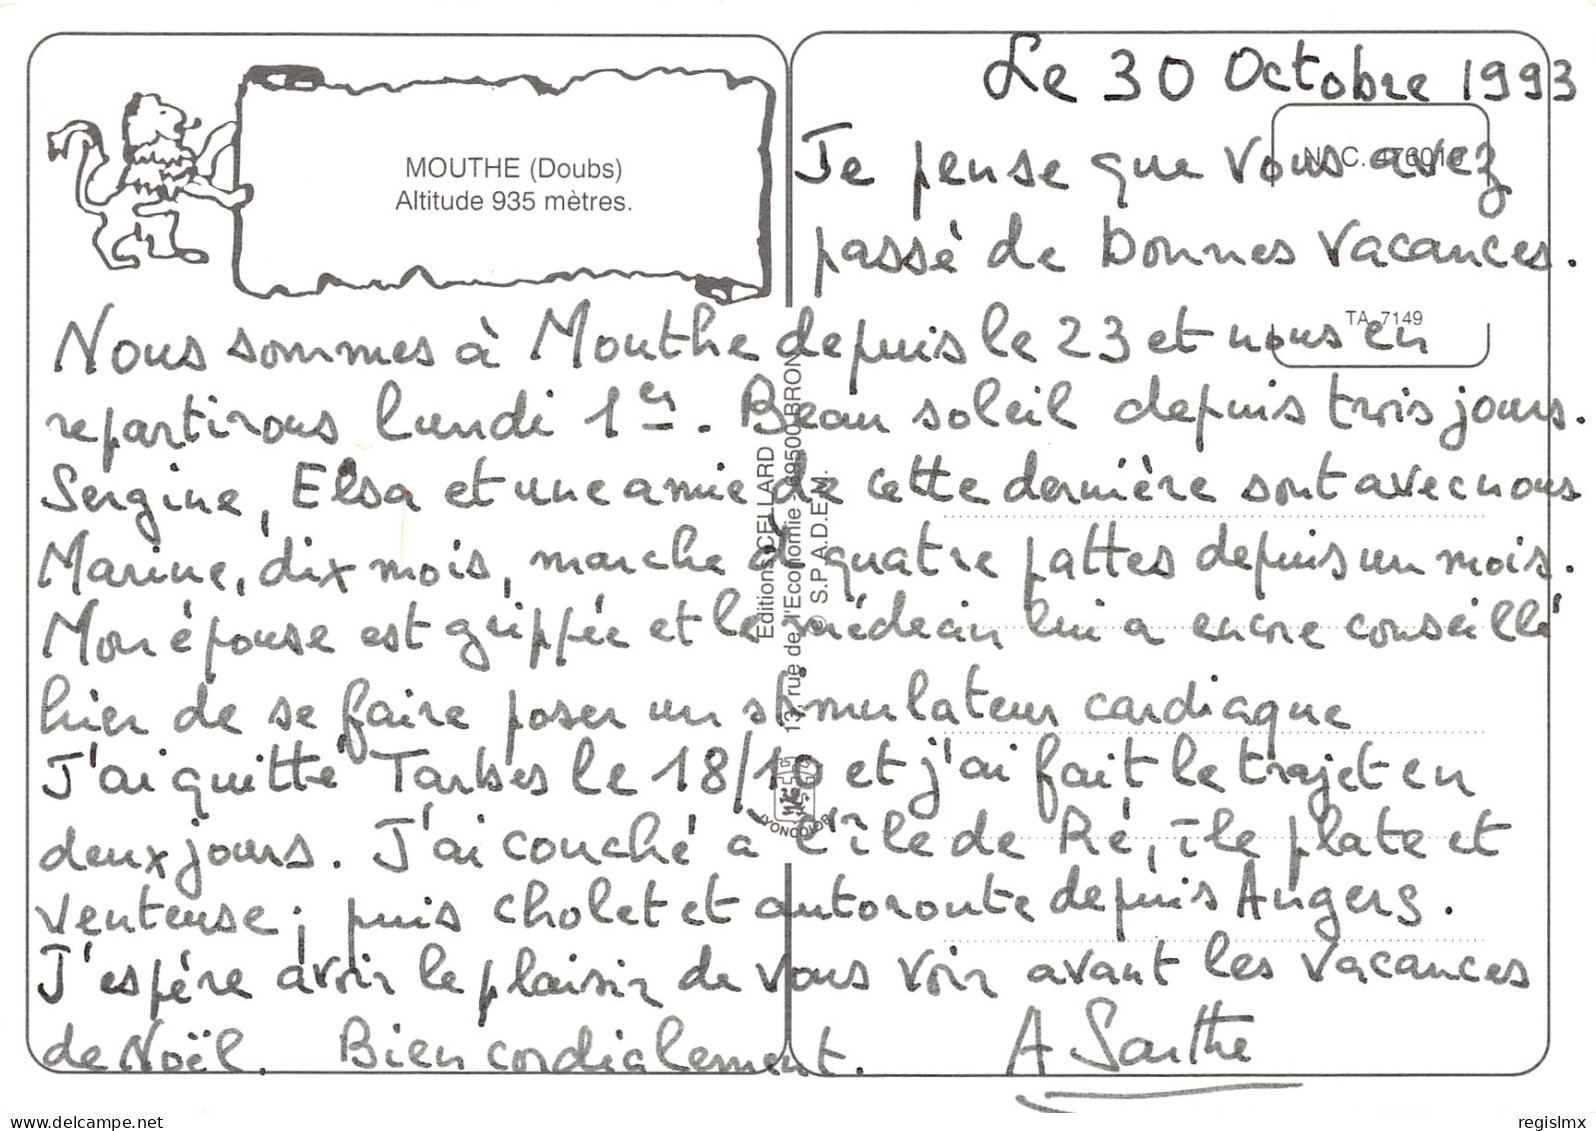 Le 30 Octobre 1993
MOUTHE (Doubs)
Altitude 935 mètres.
Je pense que vous avez
passé de bonnes vacances.
TA 7149
Nous sommes à Mouthe depuis le 23 et nous en
repartirons lundi 1er. Beau soleil depuis trois jours.
Sergine, Elsa et une amie de cette dernière sont avec nous.
Marine, dix mois, marche à quatre pattes depuis un mois.
Mon épouse est grippée et le médecin lui a encore conseillé
hier de se faire poser un stimulateur cardiaque
J'ai quitté Tarbes le 18/10 et j'ai fait le trajet en
deux jours. J'ai couché à l'île de Ré, île plate et
venteuse ; puis cholet et autoroute depuis Angers.
J'espère avoir le plaisir de vous voir avant les vacances
de Noël. Bien cordialement.
A Sarthe
Editions CELLARD
13, rue de l'Economie - 69500 BRON
© S.P.A.D.E.M.
LYONCOLOR
www.delcampe.net
regislmx